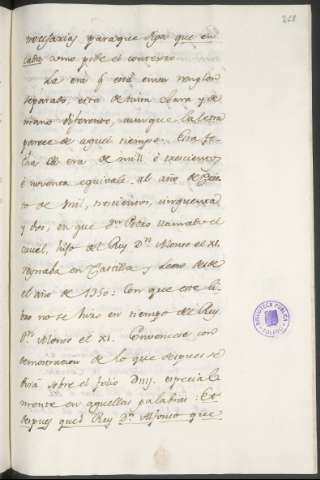 228
necesarias para que sepa que en
cada como pide el contexto
La era q está en un renglon
separado, está de tinta clara, y de
mano diferente, aunque la letra
parece de aquel tiempo. Esta fe
cha de era de mill è trescientos,
è noventa equivale al año de Chris
to de mil, trescientos, cinquenta
y dos, en que Dn Pedro llamado el
cruel, hijo del Rey Dn Alonso el XI.
reynaba en Castilla y Leon desde
el año de 1350: Con que este li
bro no se hizo en tiempo del Rey
Dn Alonso el XI. Convencese con
demostracion de lo que despues se
dirá sobre el folio especial
mente en aquellas palabras: Et
despues quel Rey Dn Alfonso que
BIBLIOTECA PÚBLICA
TOLEDO